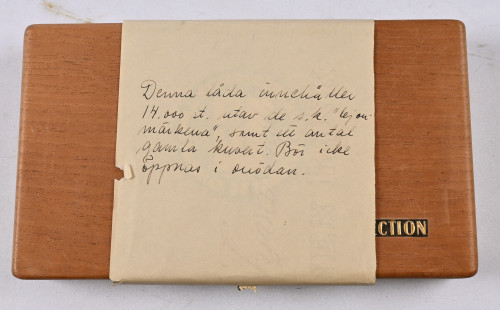 Denna låda innehåller
14.000 st. utav de s.k. "lejon
märkena", samt ett antal
gamla kuvert. Bör icke
öppnas i onödan.
ECTION